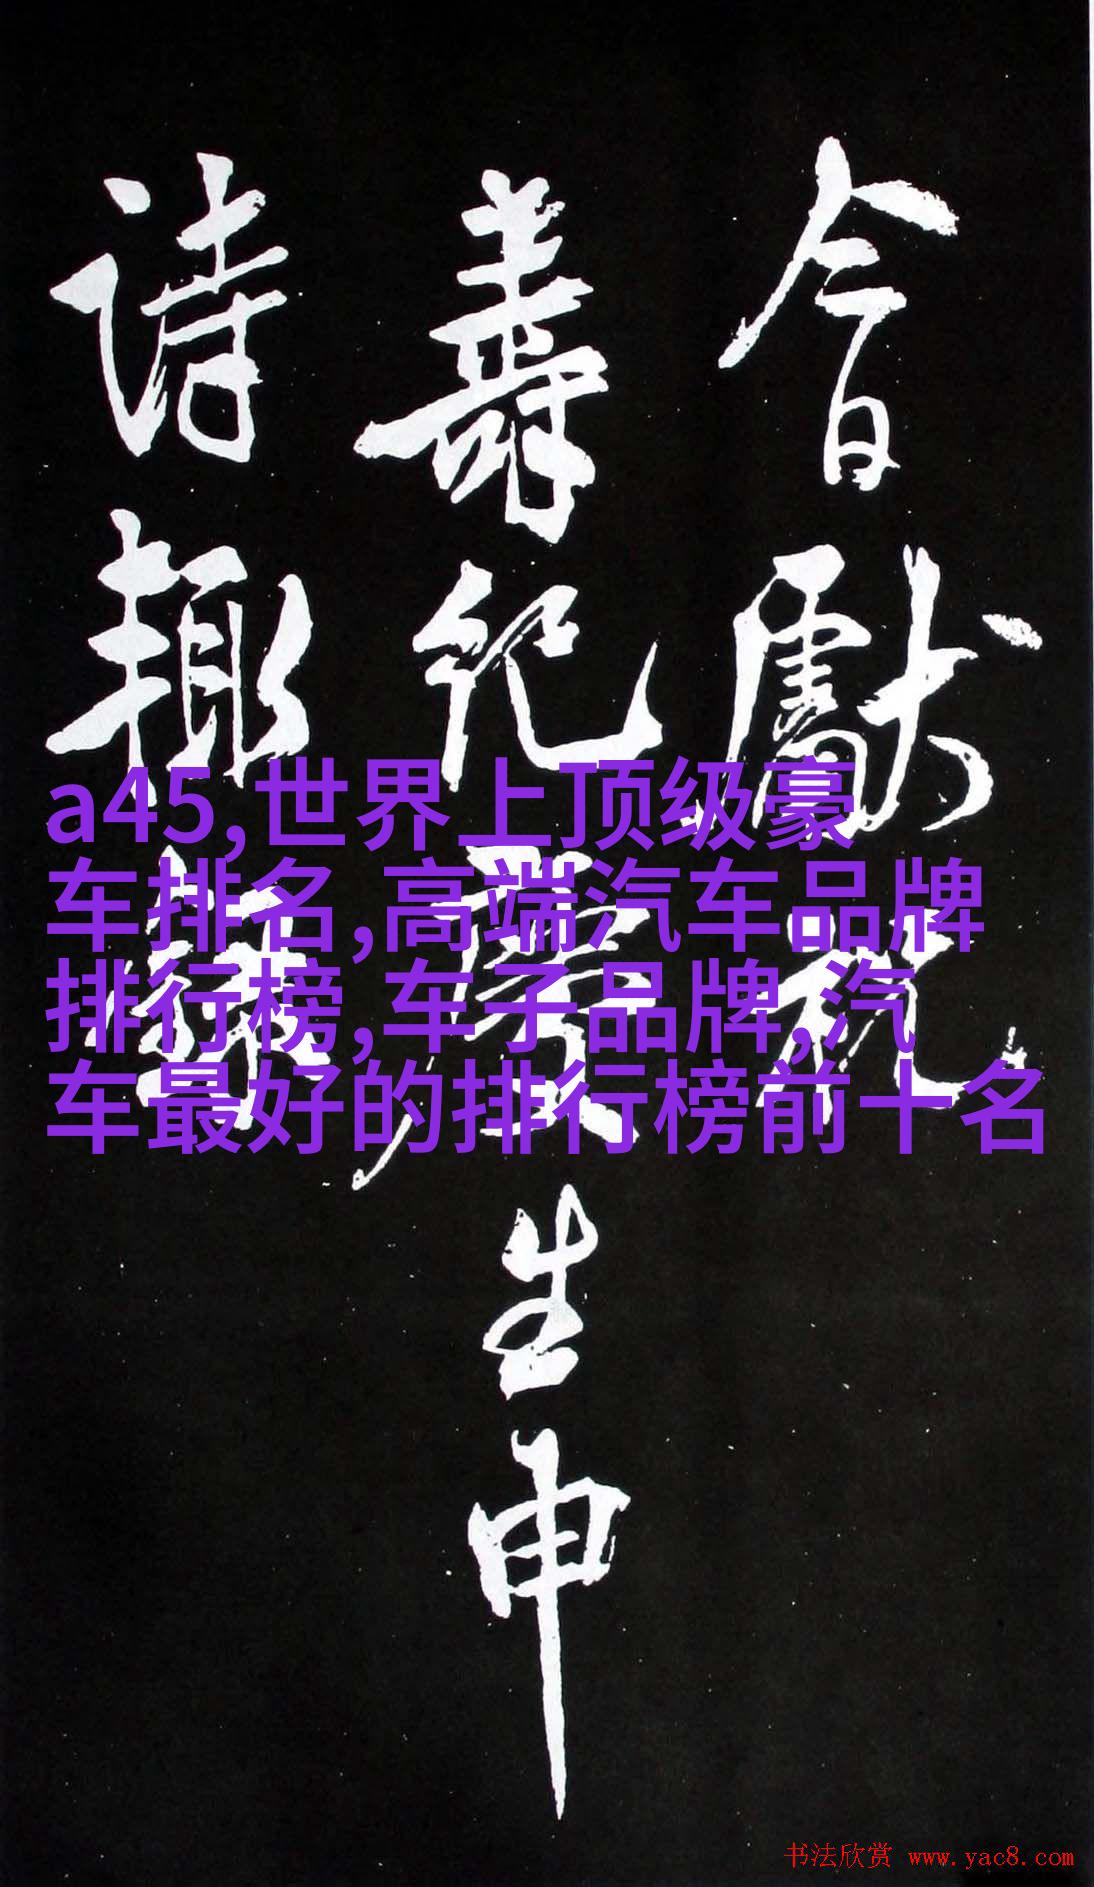 今日獻祝
壽紀慶生申
詩
a45,世界上顶级豪
车排名,高端汽车品牌
排行榜,车子品牌,汽
车最好的排行榜前十名
书法欣赏 www.yac8.com